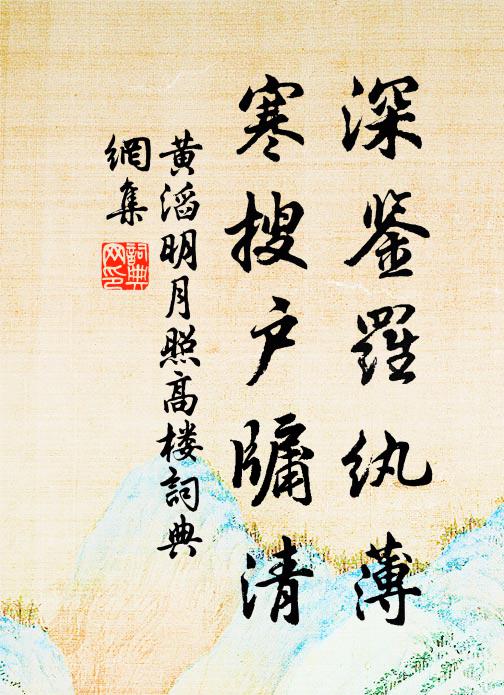 深鉴罗纨薄
寒搜户牖清
黄滔明月照高楼词典
网集
词典
网印